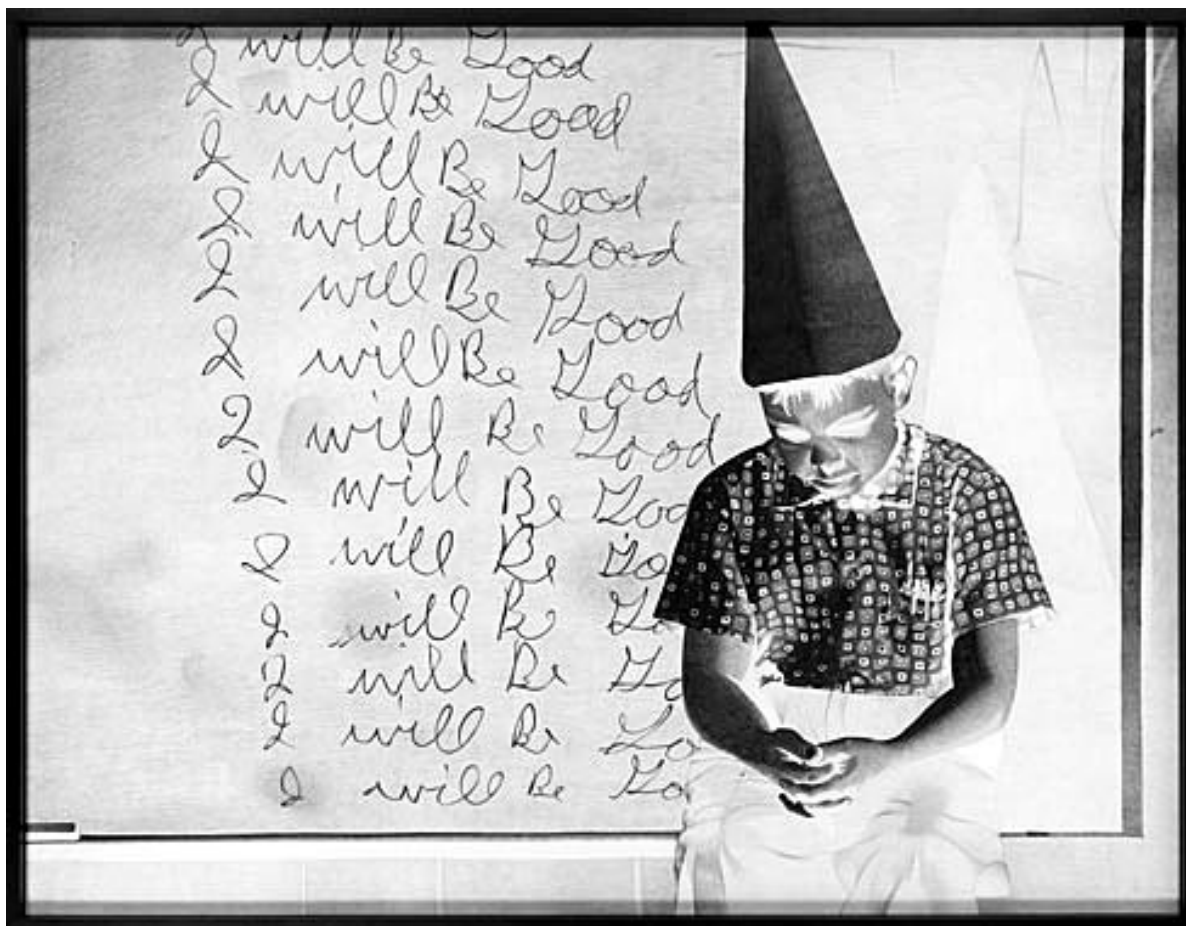 I will Be Good
I will Be Good
I will Be Good
I will Be Good
I will Be Good
I will Be Good
I will Be Good
I will Be Goo
I will Be Go
I will Be Go
I will Be Go
I will Be Go
I will Be Go